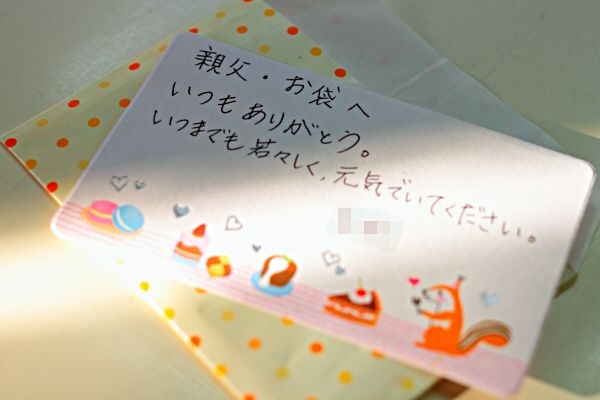 親父・お袋へ
いつもありがとう。
いつまでも若々しく,元気でいてください。